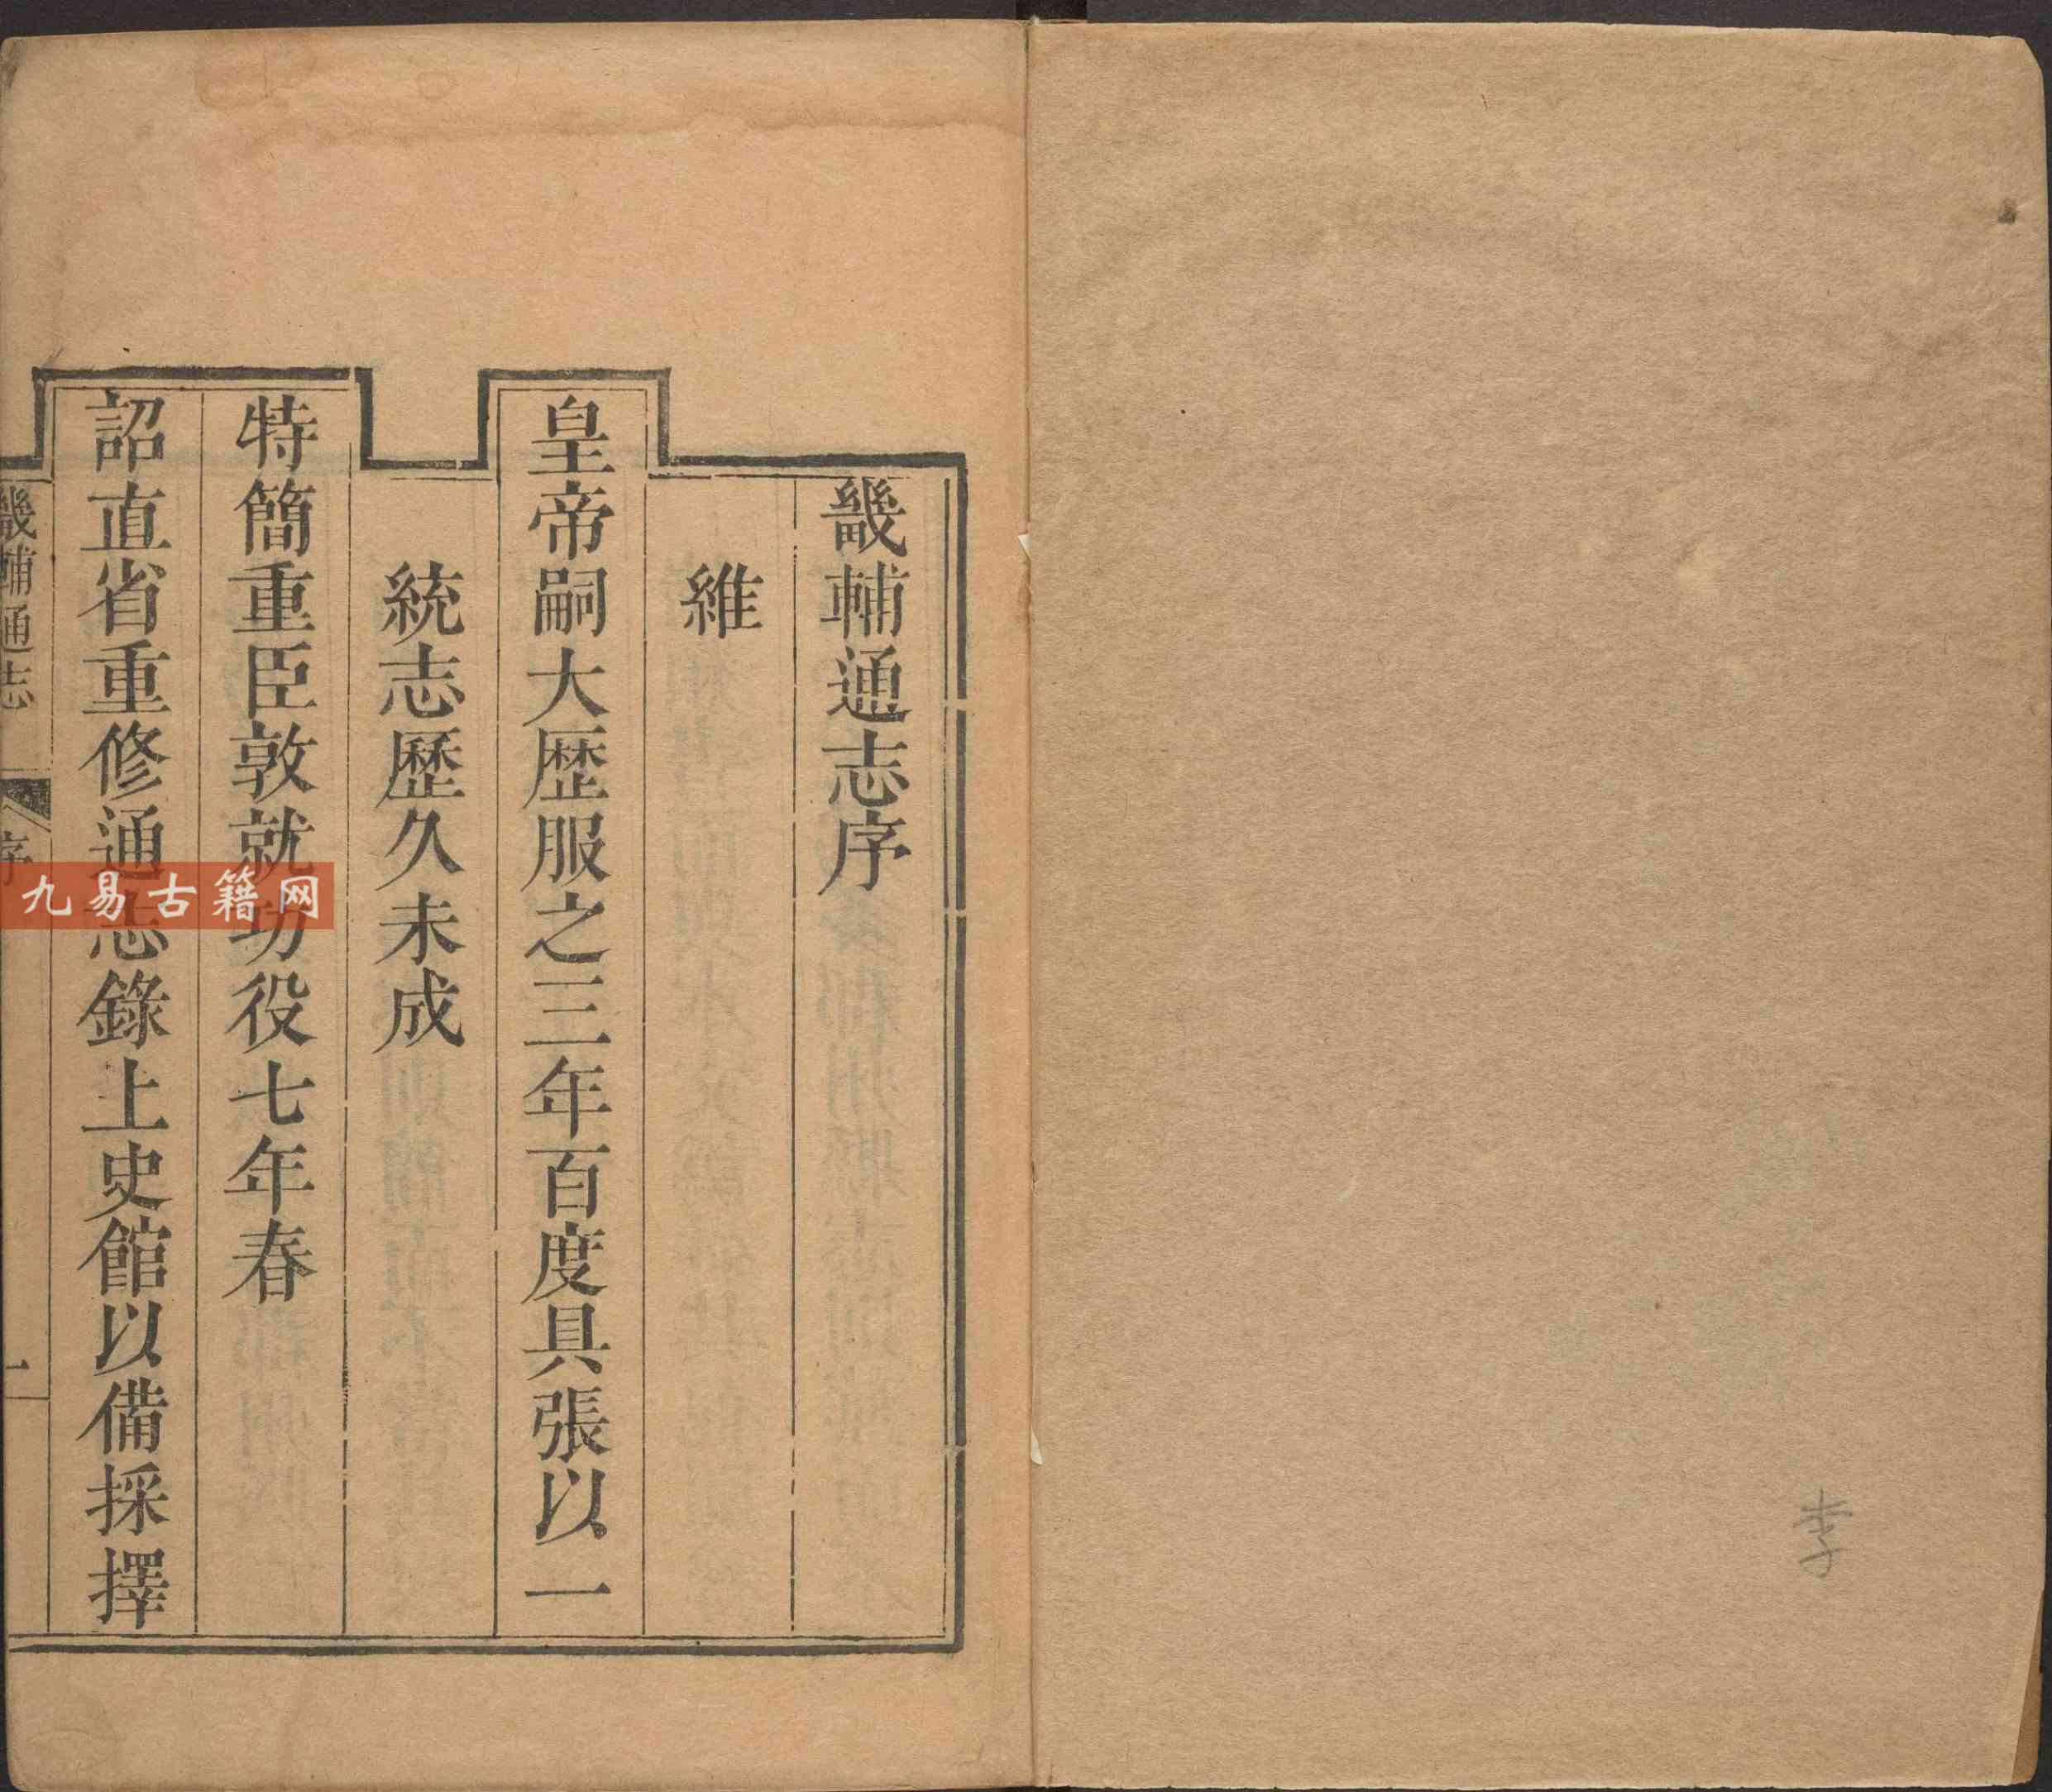 畿輔通志序
維
皇帝嗣大歷服之三年百度具張以一
統志歷久未成
特簡重臣敦就功役七年春
詔直省重修通志錄上史館以備採擇
畿輔通志
序
一
九易古籍网
李